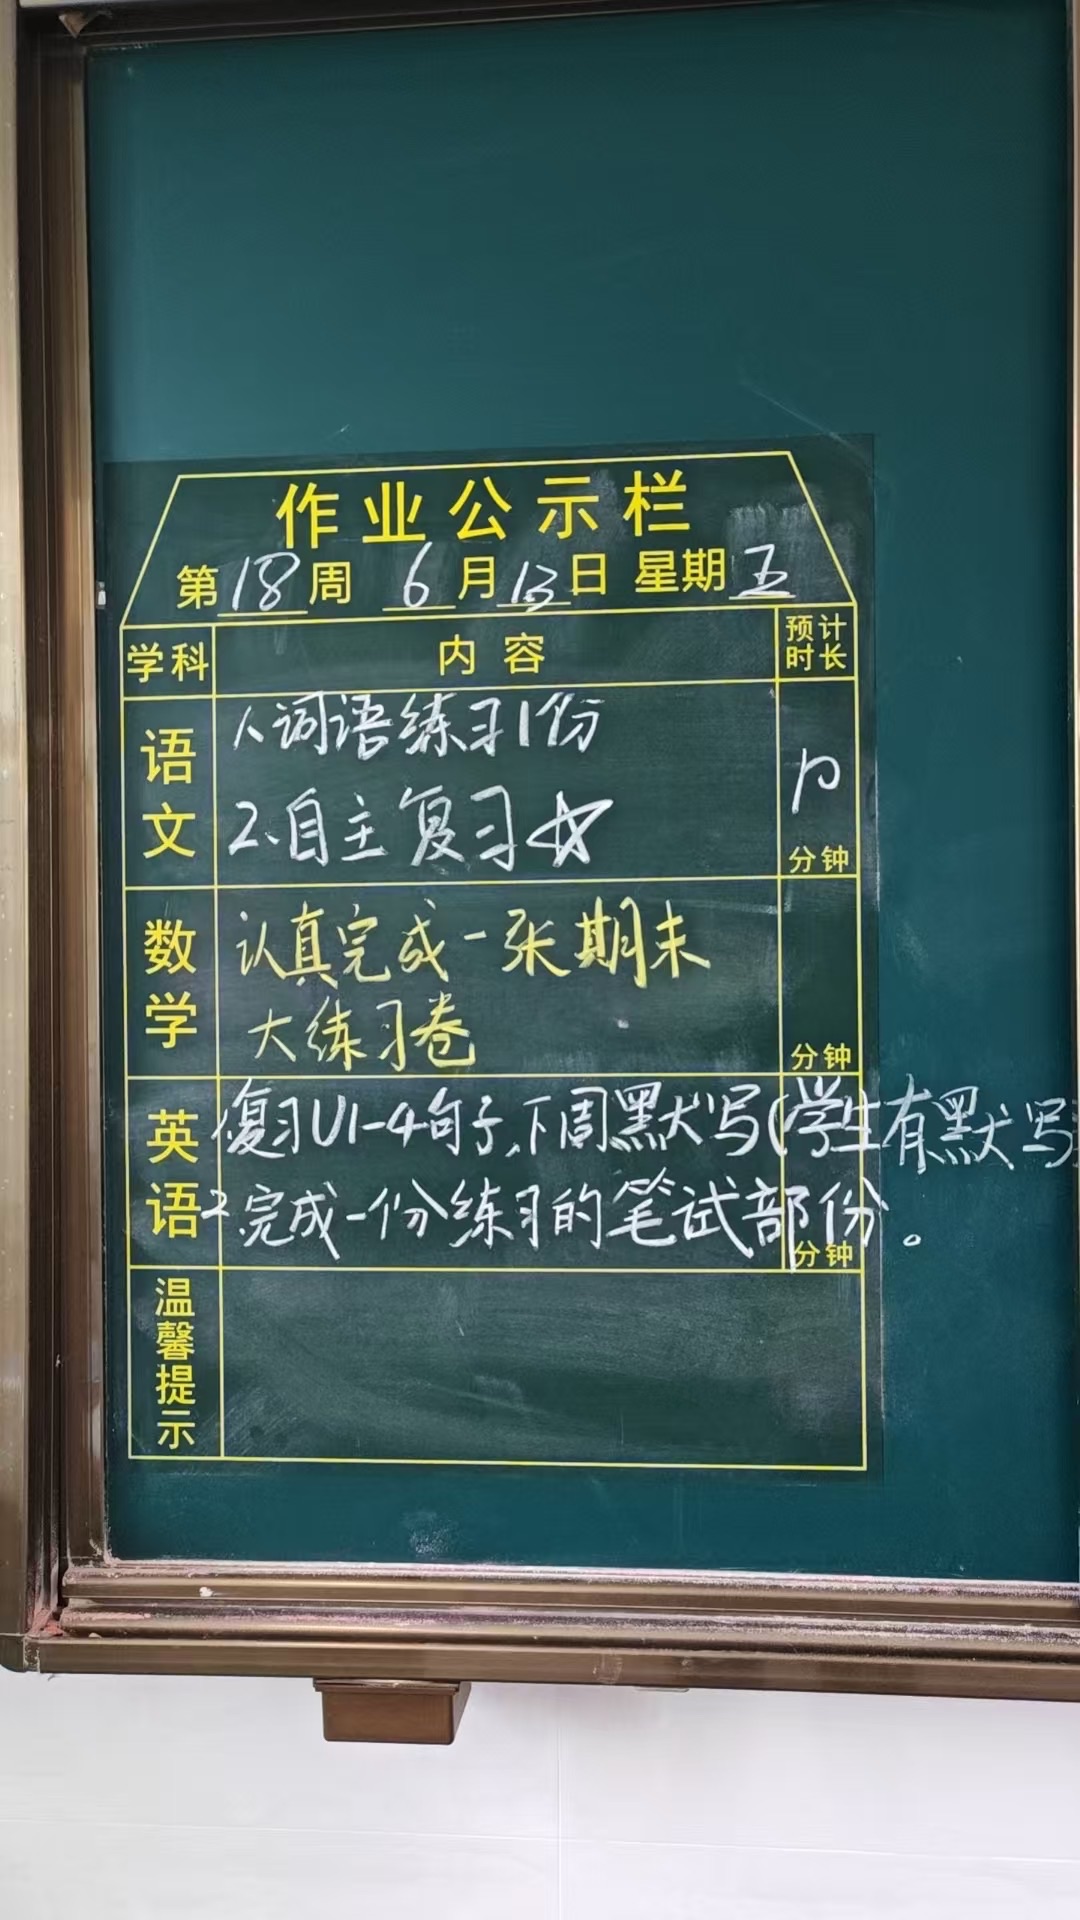 作业公示栏
第18周 6月13日 星期五
学科 内容 预计时长
语文
1、词语练习1份
2、自主复习☆
分钟
数学
认真完成一张期末
大练习卷
分钟
英语
1、复习U1-4句子,下周默写(学生有默写
2、完成一份练习的笔试部份。
分钟
温馨提示